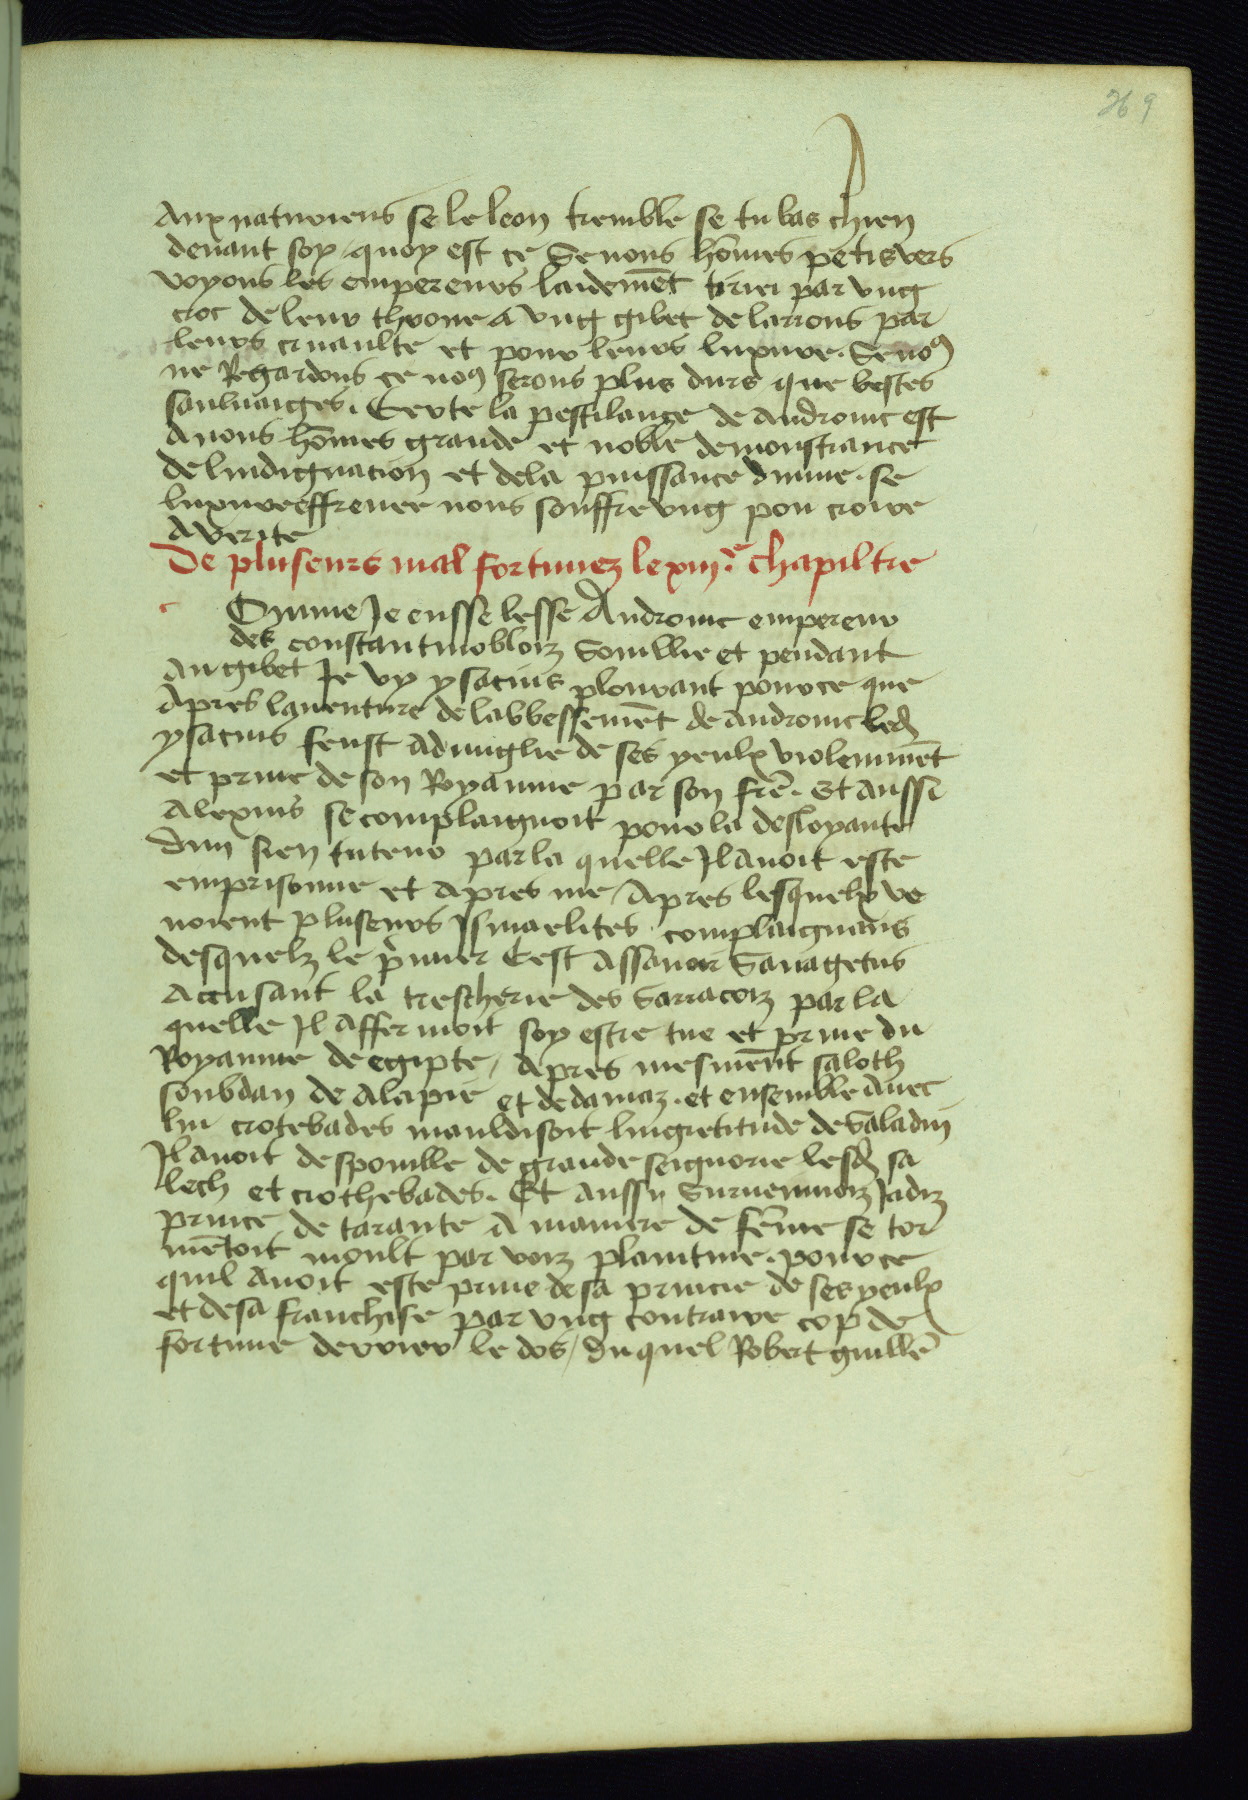 269
Aux naturiens se le leon tremble se tu bas chien
devant soy / quoy est ce Se nous hom̄es petis vers
voyons les empereurs laidemēt tirier par vng
croc de leur throne a vng gibet de larrons par
leurs cruaulte et pour leurs luxure. Se noꝰ
ne Regardons ce noꝰ serons plus durs que bestes
sauluaiges. Certe la pestilange de andronic est
a nous hom̄es grande et noble demonstrance
de lindignacion et dela puissance diuine. se
luxure effrenee nous souffre vng pou croire
a verite
De pluseurs mal fortunez le xiij.e chapiltre
c Omme Je eusse lesse Andronic empereur
des constantinobloiz Souillie et pendant
au gibet Je vy ysacius plourant pour ce que
Apres lauenture de labbessemēt de andronic led
ysacius feust aduuglie de ses yeulx violemmēt
et priue de son Royaume par son frē. Et aussi
Alexius se complaignoit pour la desloyaute
dun sien tuteur par la quelle Il auoit este
emprisonne et apres tue / Apres lesquelx ve
noient pluseurs Ismaelites complaignans
desquelz le p̄mier Cest assauoir Sanagetus
Accusant la trescherie des Sarracoiz par la
quelle Il affermoit soy estre tue et priue du
Royaume de egipte / apres mesmēnt saloth
soubdan de alapie et de damaz. et ensemble auec
lui crotebades mauldisoit lingretitude de Saladin
Il auoit despouille de grande seignorie lesd sa
lech et crothebades. Et aussy Jadiz
prince de tarante a maniere de fēme se tor
mētoit moult par voiz plaintiue. pour ce
quil auoit este priue de sa princie de ses yeulx
et de sa franchise par vng contraire cop de
fortune derrier le dos / du quel Robert guillē